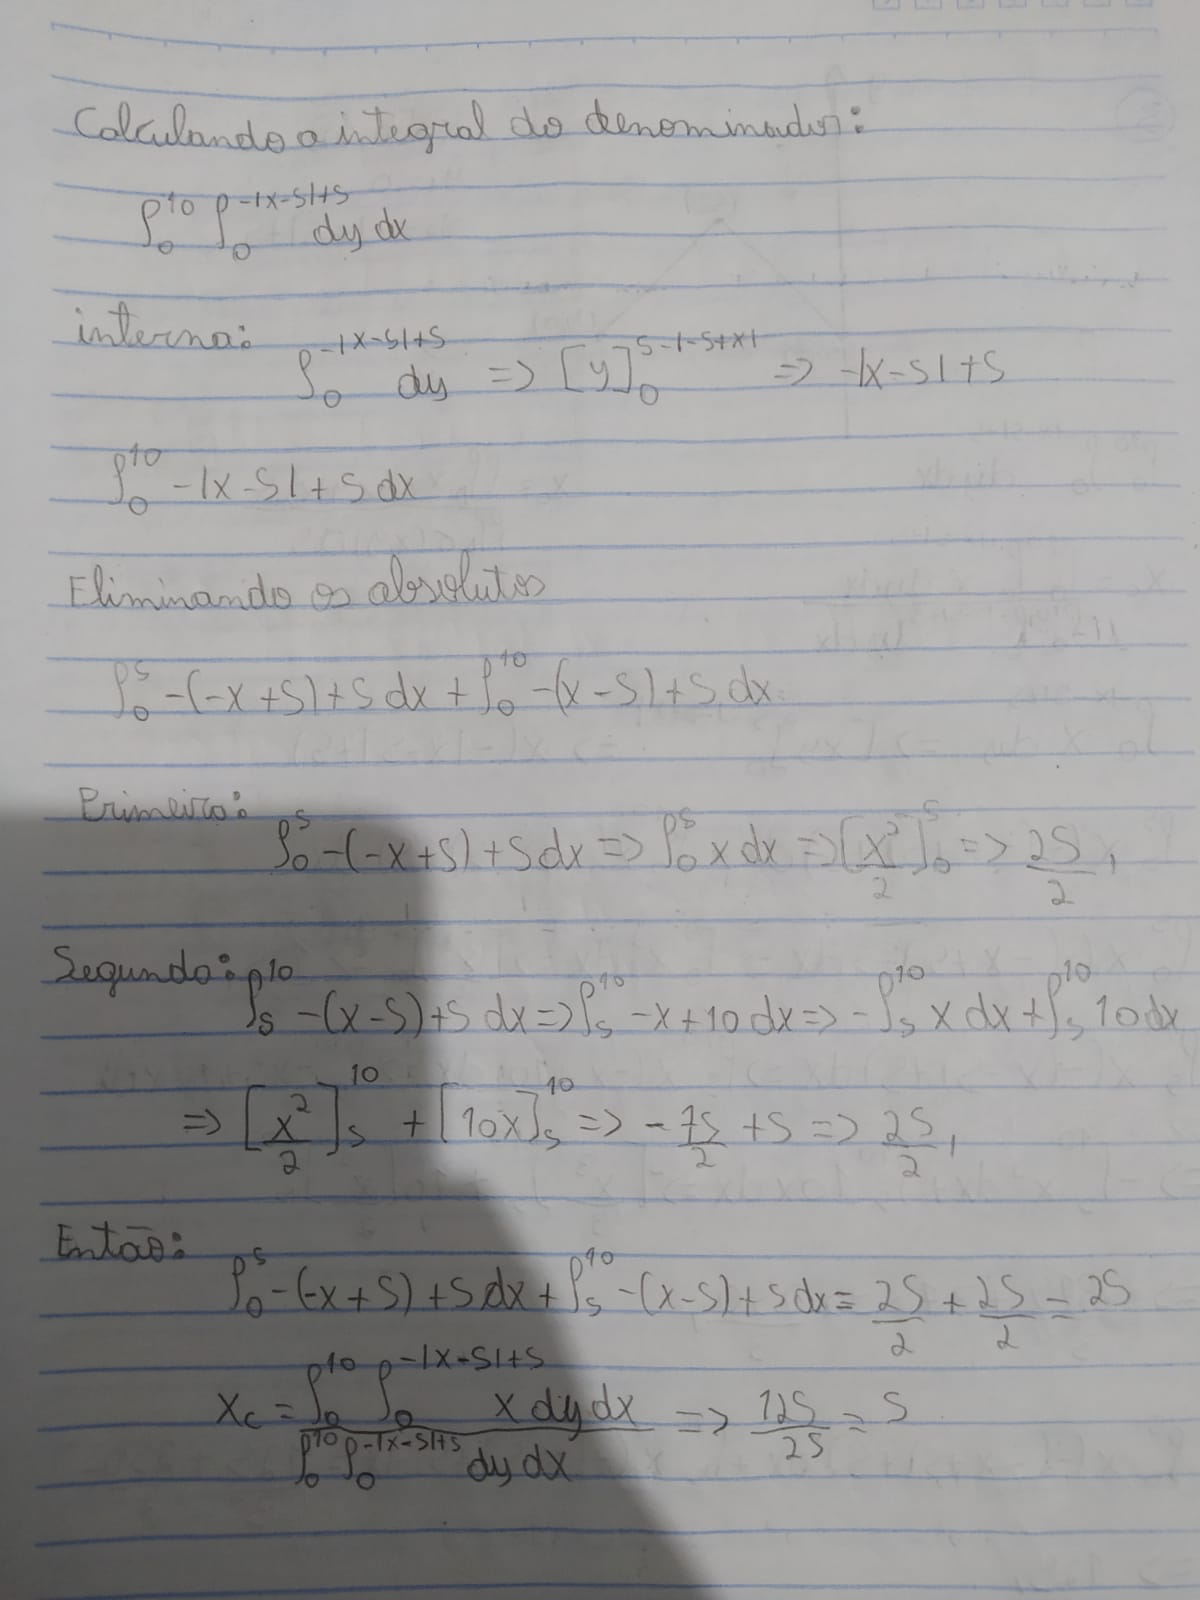 Calculando a integral do denominador:
∫₀¹⁰ ∫₀^(-|x-5|+5) dy dx
interna: ∫₀^(-|x-5|+5) dy => [y]₀^(5-|-5+x|) => -|x-5|+5
∫₀¹⁰ -|x-5|+5 dx
Eliminando os absolutos
∫₀⁵ -(-x+5)+5 dx + ∫₀¹⁰ -(x-5)+5 dx
Primeiro: ∫₀⁵ -(-x+5)+5 dx => ∫₀⁵ x dx => [x²/2]₀⁵ => 25/2,
Segundo: ∫₅¹⁰ -(x-5)+5 dx => ∫₅¹⁰ -x+10 dx => -∫₅¹⁰ x dx + ∫₅¹⁰ 10 dx
=> [x²/2]₅¹⁰ + [10x]₅¹⁰ => -75/2 + 5 => 25/2,
Então:
∫₀⁵ -(-x+5)+5 dx + ∫₅¹⁰ -(x-5)+5 dx = 25/2 + 25/2 = 25
Xc = ∫₀¹⁰ ∫₀^(-|x-5|+5) x dy dx / ∫₀¹⁰ ∫₀^(-|x-5|+5) dy dx => 125/25 = 5